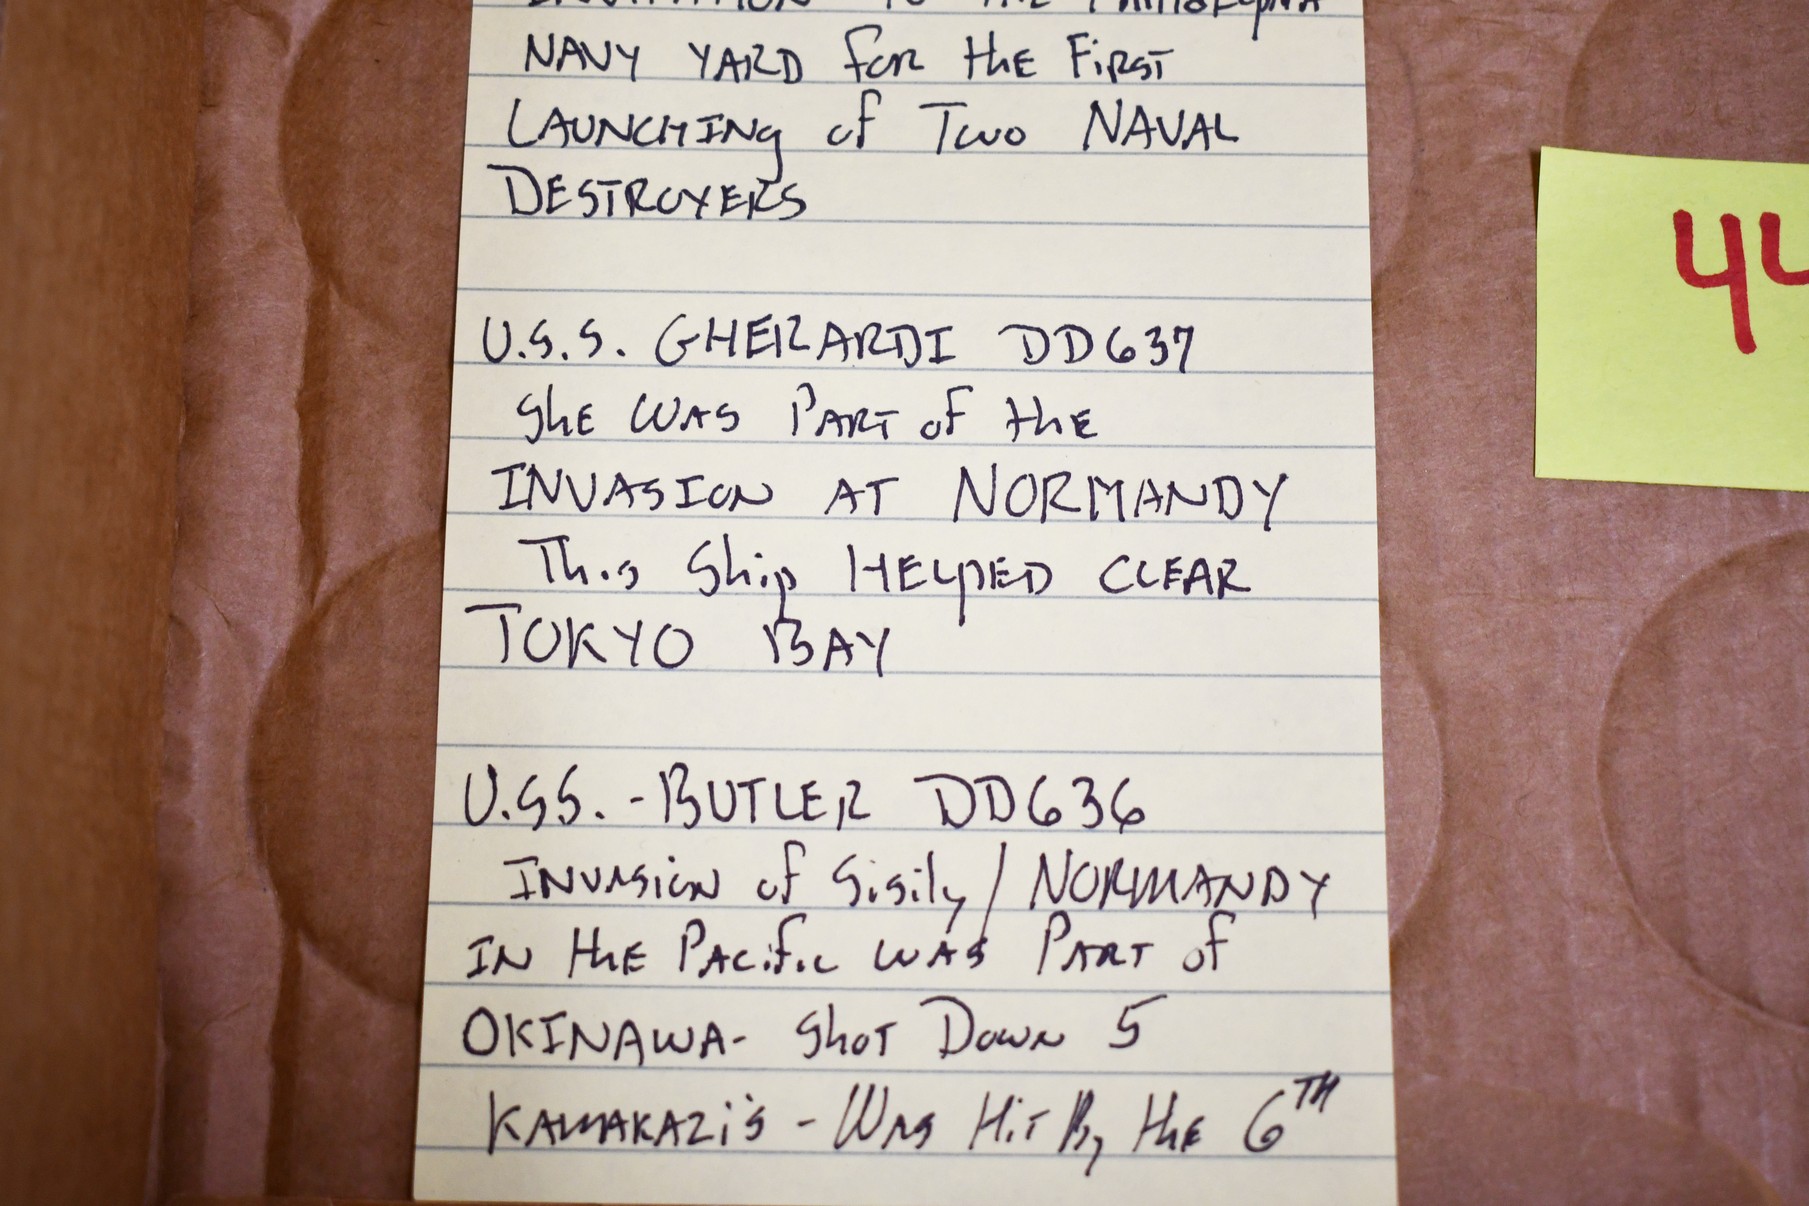 INVITATION TO THE PHILADELPHIA
NAVY YARD for the FIRST
LAUNCHING of Two NAVAL
DESTROYERS
U.S.S. GHERARDI DD637
She WAS PART of the
INVASION AT NORMANDY
This Ship HELPED CLEAR
TOKYO BAY
U.S.S. - BUTLER DD636
INVASION of Sisily / NORMANDY
IN the PACific WAS PART of
OKINAWA- Shot Down 5
KAMAKAZi's - WAS Hit By the 6TH
44